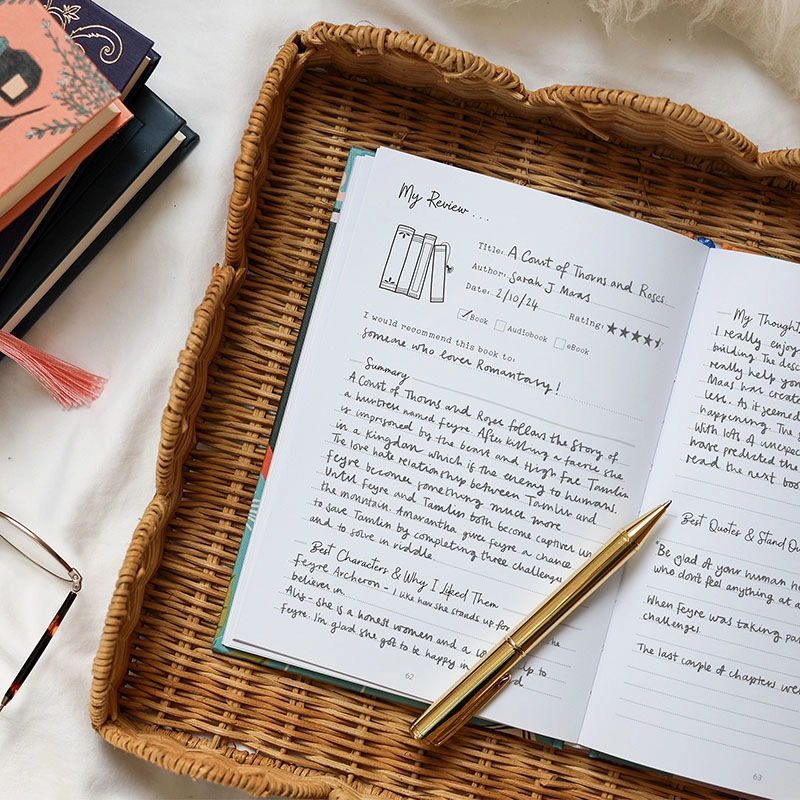 My Review ...
Title: A Court of Thorns and Roses
Author: Sarah J Maas
Date: 2/10/24 Rating: ★★★★
Book Audiobook eBook
I would recommend this book to:
someone who loves Romantasy!
Summary
A Court of Thorns and Roses follows the story of
a huntress named Feyre. After killing a faerie she
is imprisoned by the beast and High Fae Tamlin
in a kingdom which is the enemy to humans.
The love hate relationship between Tamlin and
Feyre become something much more
Until Feyre and Tamlin both become captive un
the mountain. Amarantha gives Feyre a chance
to save Tamlin by completing three challenges
and to solve in riddle.
Best Characters & Why I Liked Them
Feyre Archeron - I like how she stands up for the
believer in
Alis - she is a honest women and a to
Feyre. I'm glad she got to be happy in
62
My Though
I really enjoy
building. The desc
really help you
Maas has create
less. As it seemed
happening. The
With lots of unexpec
have predicted the
read the next boo
Best Quotes & Stand Ou
"Be glad of your human h
who don't feel anything at a
When Feyre was taking pa
challenge!
The last couple of chapters wer
63